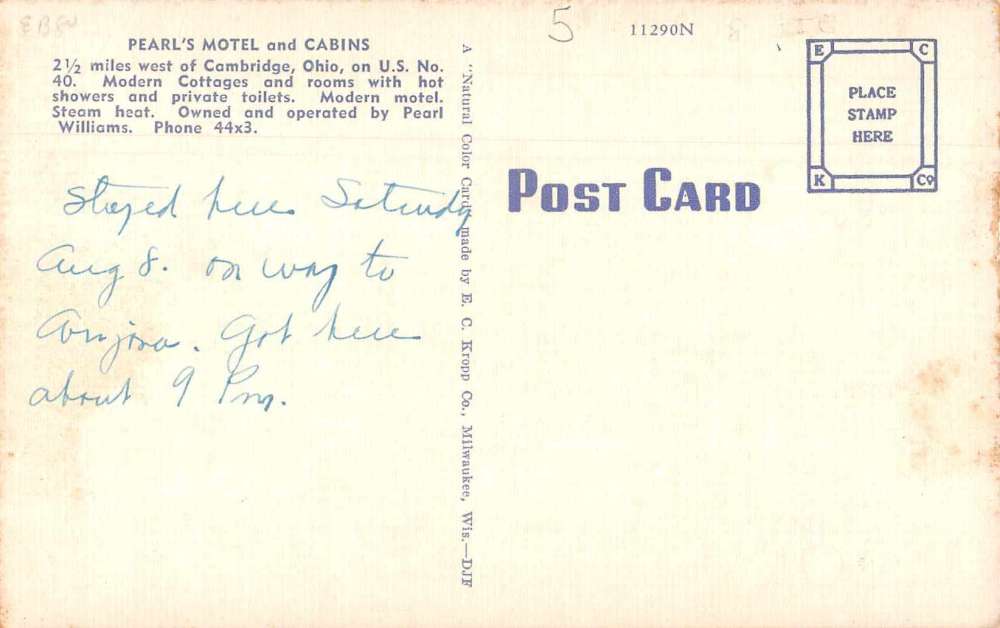 5
11290N
PEARL'S MOTEL and CABINS
2½ miles west of Cambridge, Ohio, on U.S. No.
40. Modern Cottages and rooms with hot
showers and private toilets. Modern motel.
Steam heat. Owned and operated by Pearl
Williams. Phone 44x3.
Stayed here Saturday
Aug 8. on way to
Arizona. Got here
about 9 Pm.
A "Natural Color Card" made by E. C. Kropp Co., Milwaukee, Wis.—DJF
POST CARD
E C
PLACE
STAMP
HERE
K Co